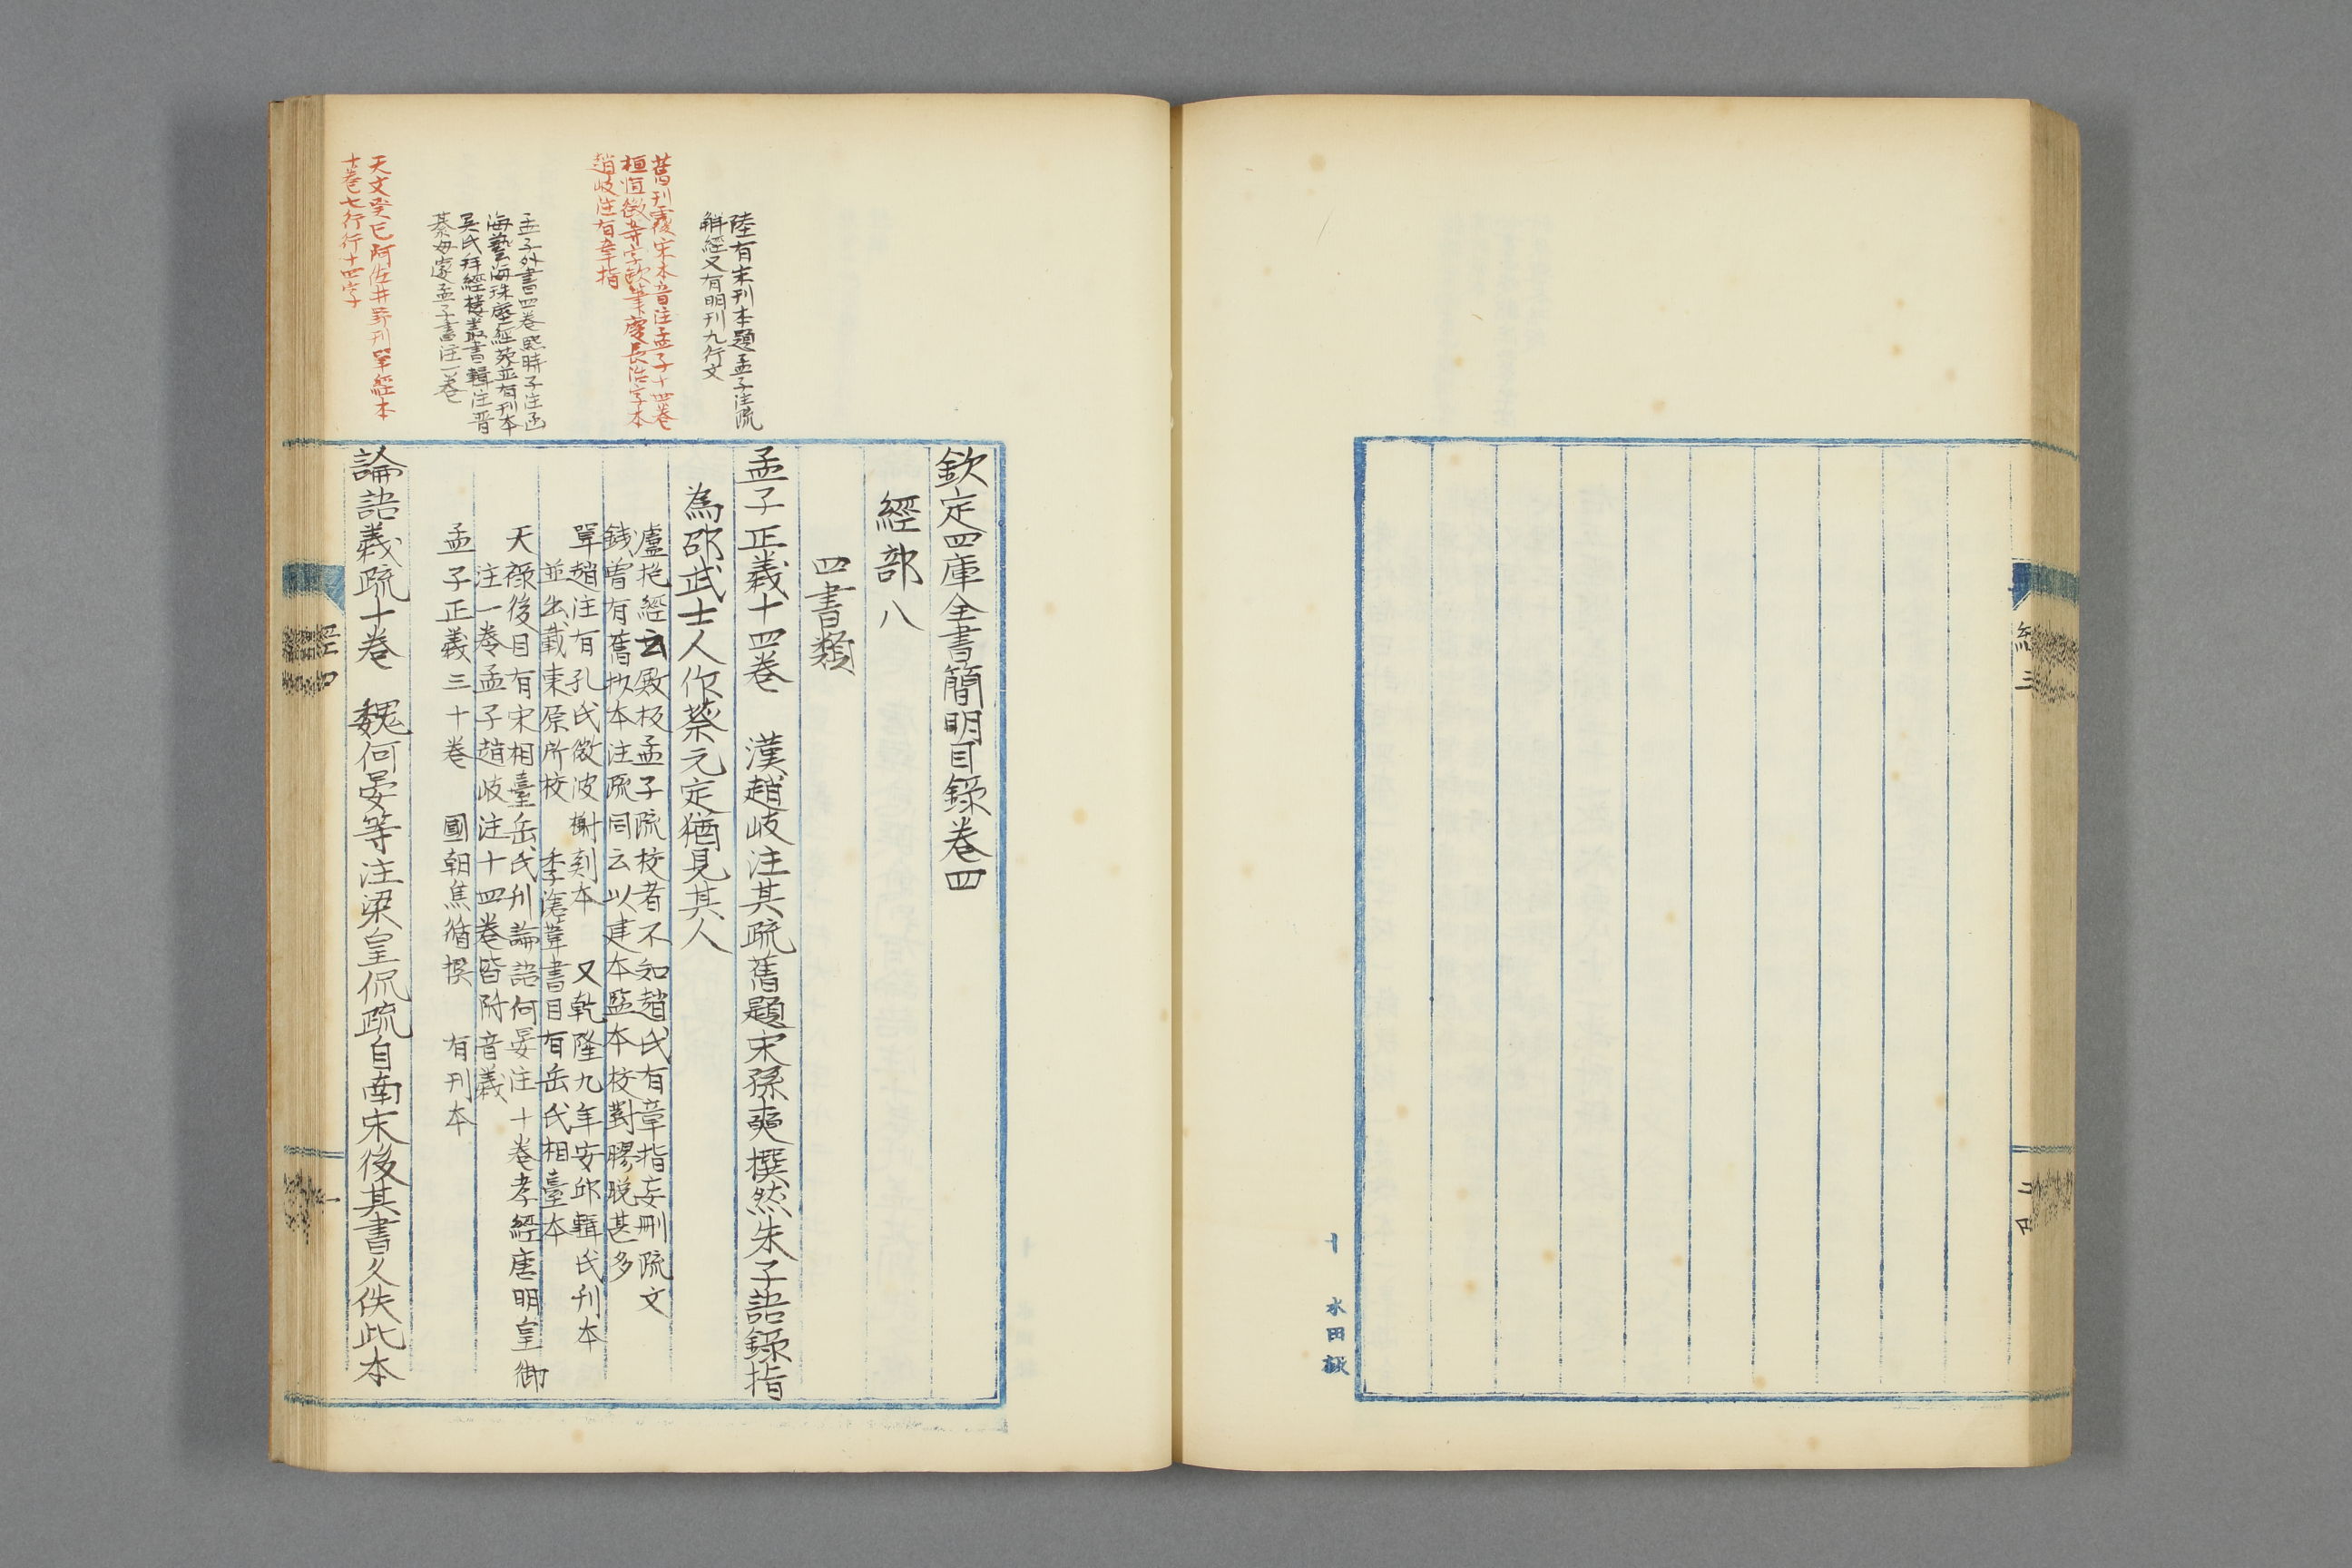 欽定四庫全書簡明目錄卷四
經部八
四書類
孟子正義十四卷　漢趙岐注其疏舊題宋孫奭撰然朱子語錄指
為邵武士人作蔡元定猶見其人
盧抱經云殿板孟子疏校者不知趙氏有章指妄刪疏文
錢曾有舊抄本注疏同云以建本監本校對膠脫甚多
單趙注有孔氏微波榭刻本　又乾隆九年安邱輯氏刊本
並出戴東原所校　季滄葦書目有岳氏相臺本
天祿後目有宋相臺岳氏刊論語何晏注十卷孝經唐明皇御
注一卷孟子趙岐注十四卷皆附音義
孟子正義三十卷　國朝焦循撰　有刊本
論語義疏十卷　魏何晏等注梁皇侃疏自南宋後其書久佚此本
陸有宋刊本題孟子注疏
解經又有明刊九行文
舊刊覆宋本音注孟子十四卷
桓恒徵等字欹筆慶長活字本
趙岐注有章指
孟子外書四卷熙時子注函
海藝海珠塵經苑並有刊本
吳氏拜經樓叢書輯注晋
綦毋邃孟子書注一卷
天文癸巳阿佐井野刊單經本
十卷七行行十四字
經四
一
經三
十
水田嚴